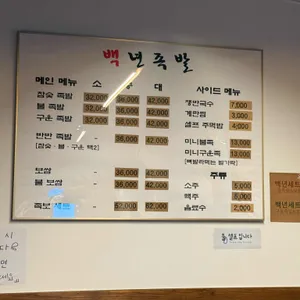 백년족발
메인 메뉴 소 중 대
참숯 족발 32,000 36,000 42,000
불 족발 32,000 36,000 42,000
구운 족발 32,000 36,000 42,000
반반 족발 - 36,000 42,000
(참숯·불·구운 택2)
보쌈 - 36,000 42,000
불 보쌈 - 36,000 42,000
족보 세트 - 52,000 62,000
사이드 메뉴
쟁반국수 7,000
계란찜 3,000
셀프 주먹밥 4,000
미니불족
미니구운족
주류
소주 5,000
맥주 5,000
음료수 2,000
백년세트
백년세트